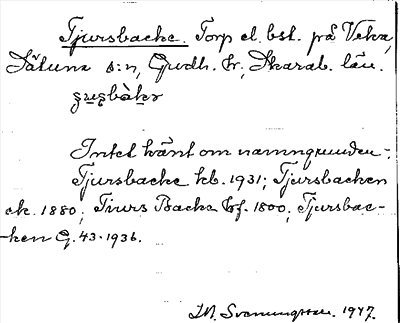 Tjursbacke. Torp el. bst. på Vilva,
Sätuna s:n, Gudh. hr; Skarab. län.
Intet känt om namngrunden.
Tjursbacke kb. 1931; Tjursbacken
ek. 1880; Tiurs Backe hf. 1800; Tjursbac-
-ken G. 43. 1936.
M. Svenungsson. 1947.